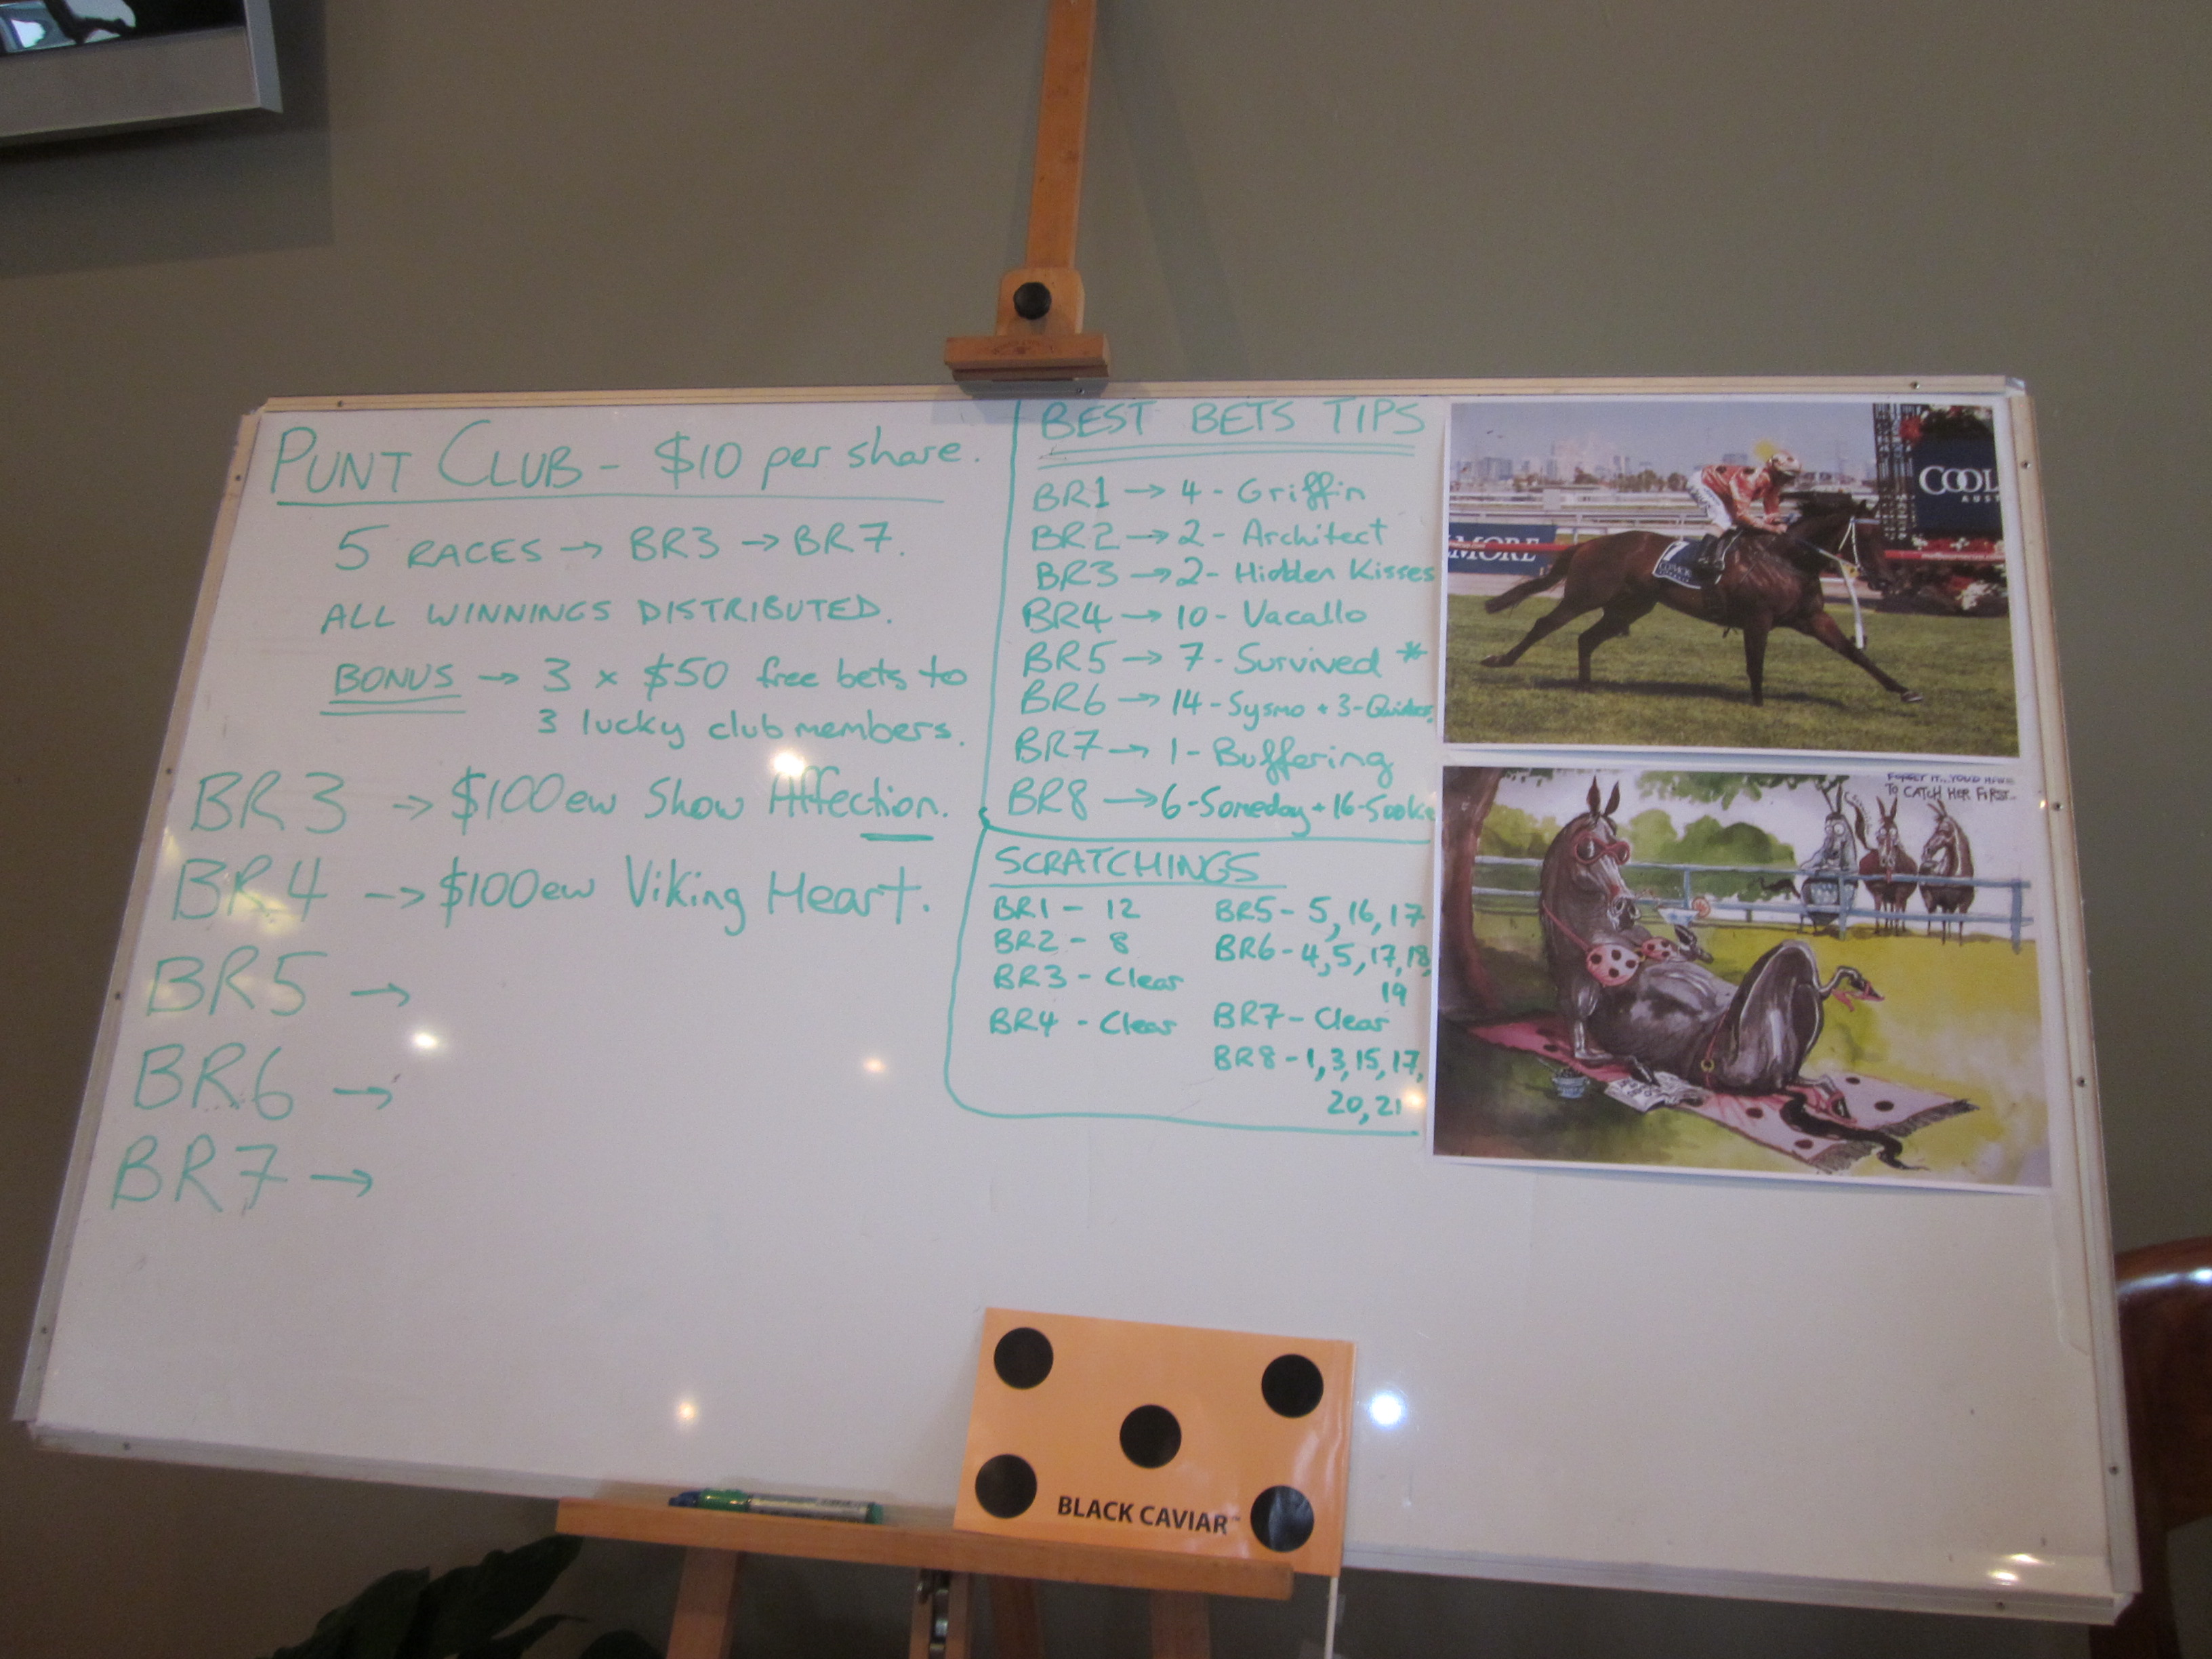 PUNT CLUB - $10 per share.
5 RACES → BR3 → BR7.
ALL WINNINGS DISTRIBUTED.
BONUS → 3 x $50 free bets to
3 lucky club members.
BR3 → $100ew Show Affection.
BR4 → $100ew Viking Heart.
BR5 →
BR6 →
BR7 →
BEST BETS TIPS
BR1 → 4 - Griffin
BR2 → 2 - Architect
BR3 → 2 - Hidden Kisses
BR4 → 10 - Vacallo
BR5 → 7 - Survived *
BR6 → 14 - Sysmo + 3 -
BR7 → 1 - Buffering
BR8 → 6 - Someday + 16 -
SCRATCHINGS
BR1 - 12
BR2 - 8
BR3 - Clear
BR4 - Clear
BR5 - 5, 16, 17
BR6 - 4, 5, 17, 18,
19
BR7 - Clear
BR8 - 1, 3, 15, 17,
20, 21
COOL
AUST
MORE
FORGET IT... YOU'D HAVE
TO CATCH HER FIRST...
BLACK CAVIAR™